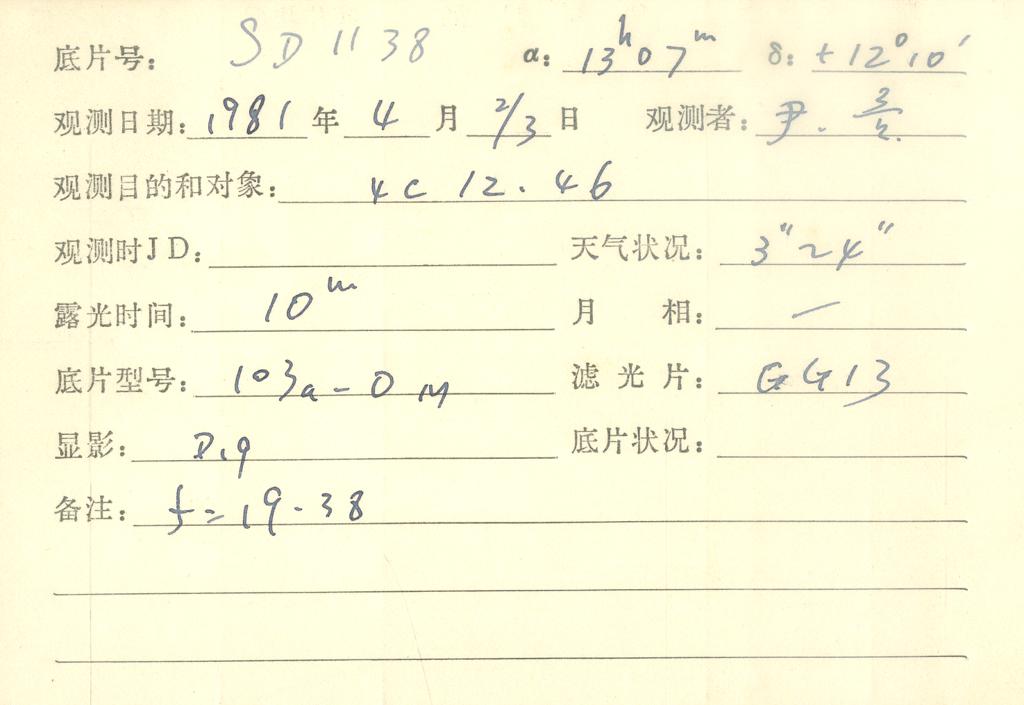 底片号: SD 1138 α: 13ʰ07ᵐ δ: +12°10′
观测日期: 1981 年 4 月 2/3 日 观测者: 尹.
观测目的和对象: 4C 12.46
观测时JD: 天气状况: 3"~4"
露光时间: 10ᵐ 月 相: —
底片型号: 103a-O 滤光片: GG13
显影: D.19 底片状况:
备注: f=19.38